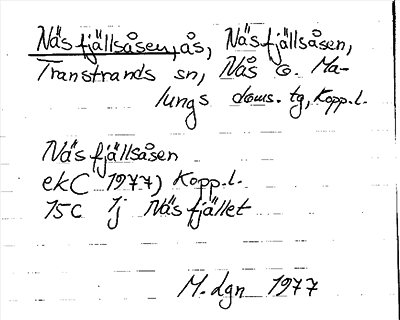 Näsfjällsåsen, ås, Näsfjällsåsen,
Transtrands sn, Nås o. Ma-
lungs doms. tg, Kopp.l.
Näsfjällsåsen
ekC 1977) Kopp.l.
15C 1j Näsfjället
M.dgn 1977